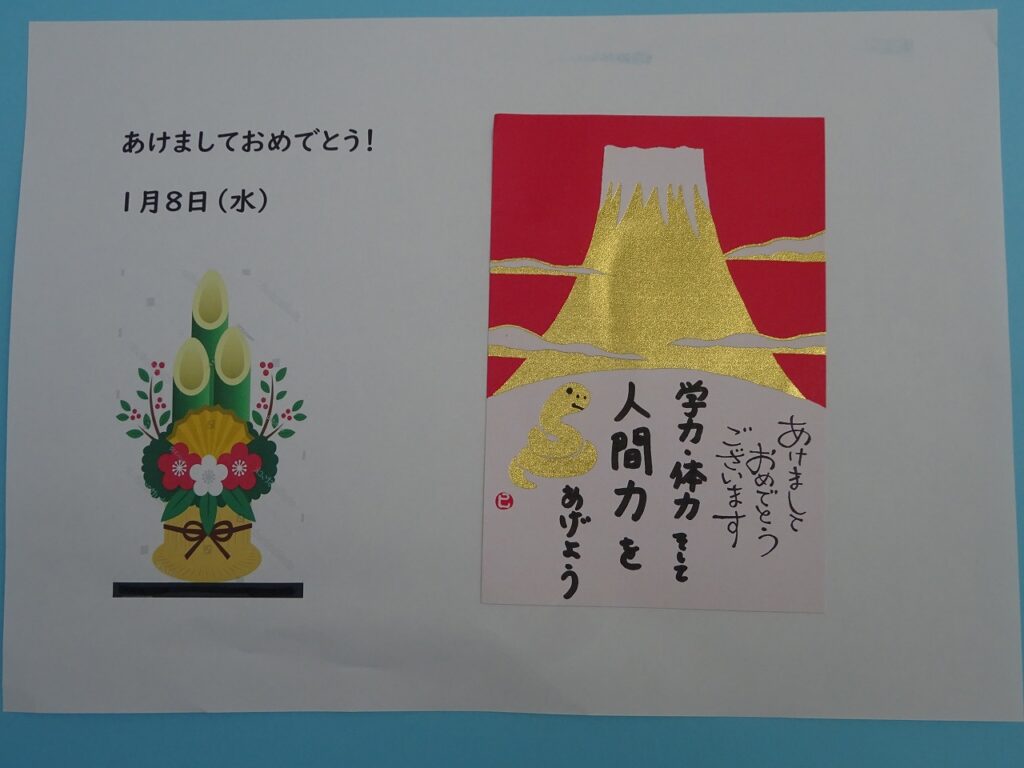 あけましておめでとう！
１月８日（水）
あけまして
おめでとう
ございます
学力・体力 そして
人間力を
あげよう
巳